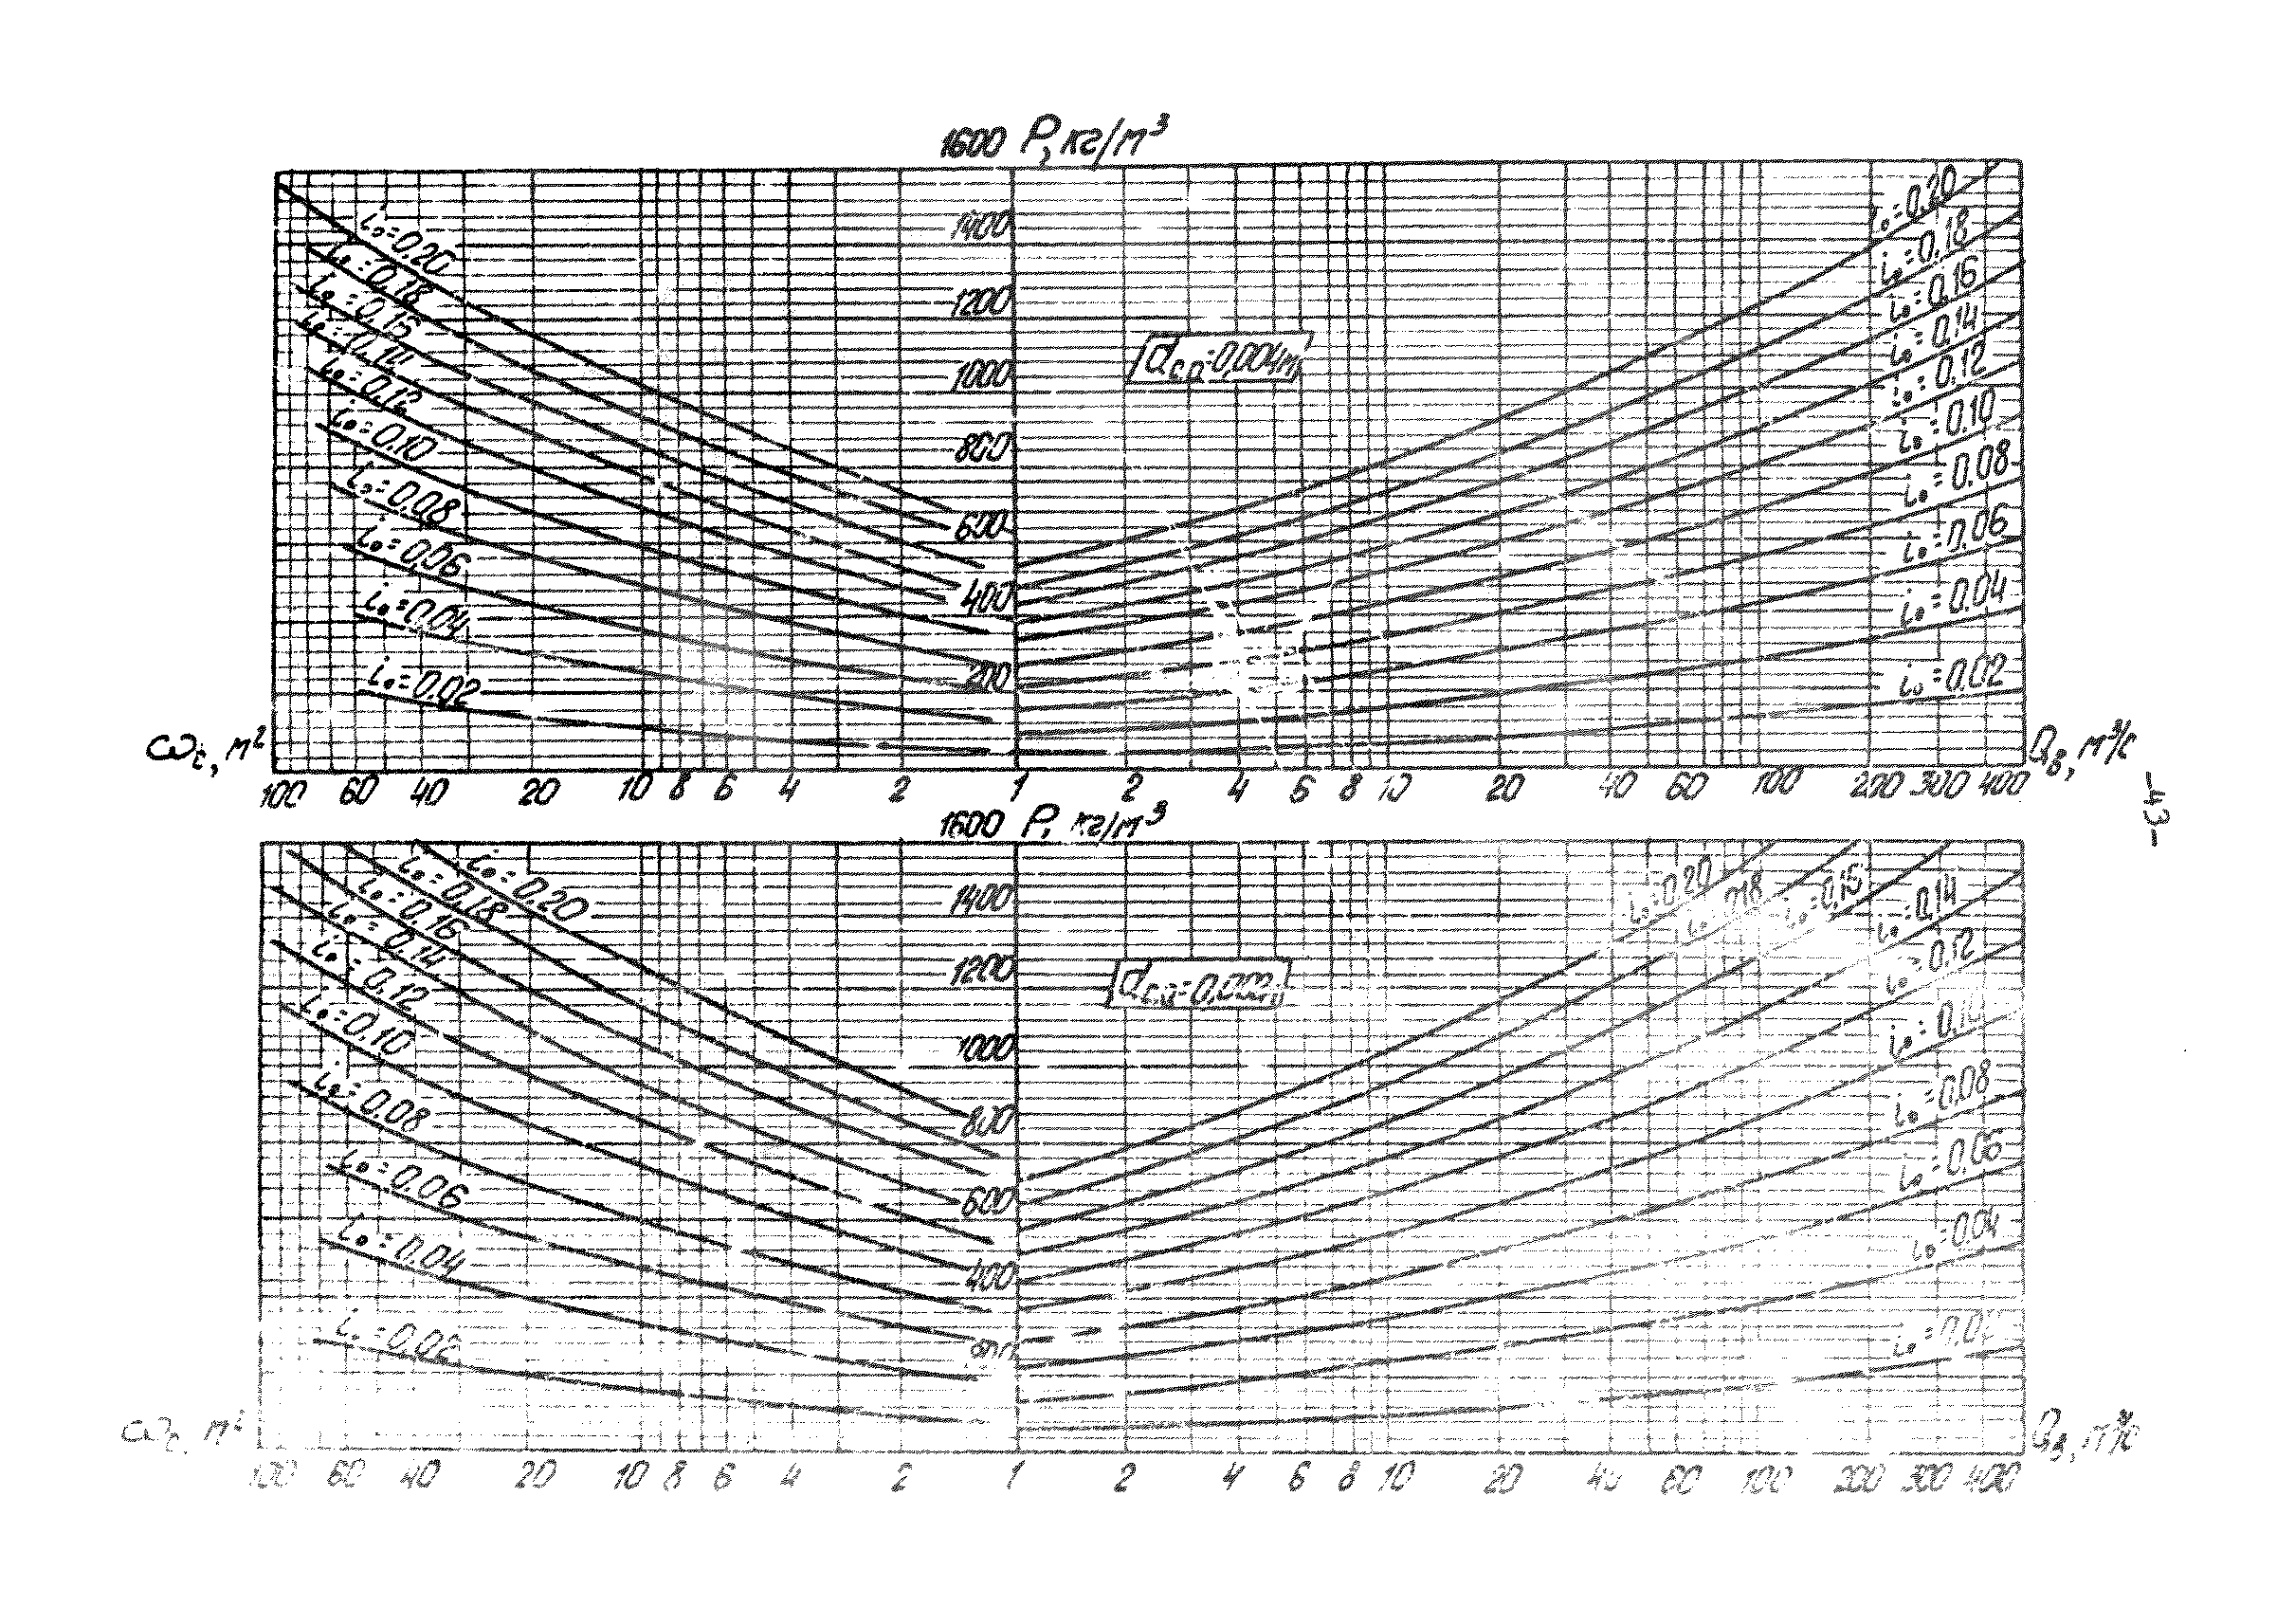 1600 P, кг/м³
1400
1200
1000
800
600
400
200
i₀=0.20
i₀=0.18
i₀=0.16
i₀=0.14
i₀=0.12
i₀=0.10
i₀=0.08
i₀=0.06
i₀=0.04
i₀=0.02
dср=0,004м
i₀=0.20
i₀=0.18
i₀=0.16
i₀=0.14
i₀=0.12
i₀=0.10
i₀=0.08
i₀=0.06
i₀=0.04
i₀=0.02
ωc, м² Qв, м³/с
100 60 40 20 10 8 6 4 2 1 2 4 6 8 10 20 40 60 100 200 300 400
-43-
1600 P, кг/м³
1400
1200
1000
800
600
400
i₀=0.20
i₀=0.18
i₀=0.16
i₀=0.14
i₀=0.12
i₀=0.10
i₀=0.08
i₀=0.06
i₀=0.04
i₀=0.02
i₀=0.20
0.18
i₀=0.16
i₀=0.14
i₀=0.12
i₀=0.10
i₀=0.08
i₀=0.06
i₀=0.04
ωc, м² Qв, м³/с
100 60 40 20 10 8 6 4 2 1 2 4 6 8 10 20 40 60 100 200 300 400